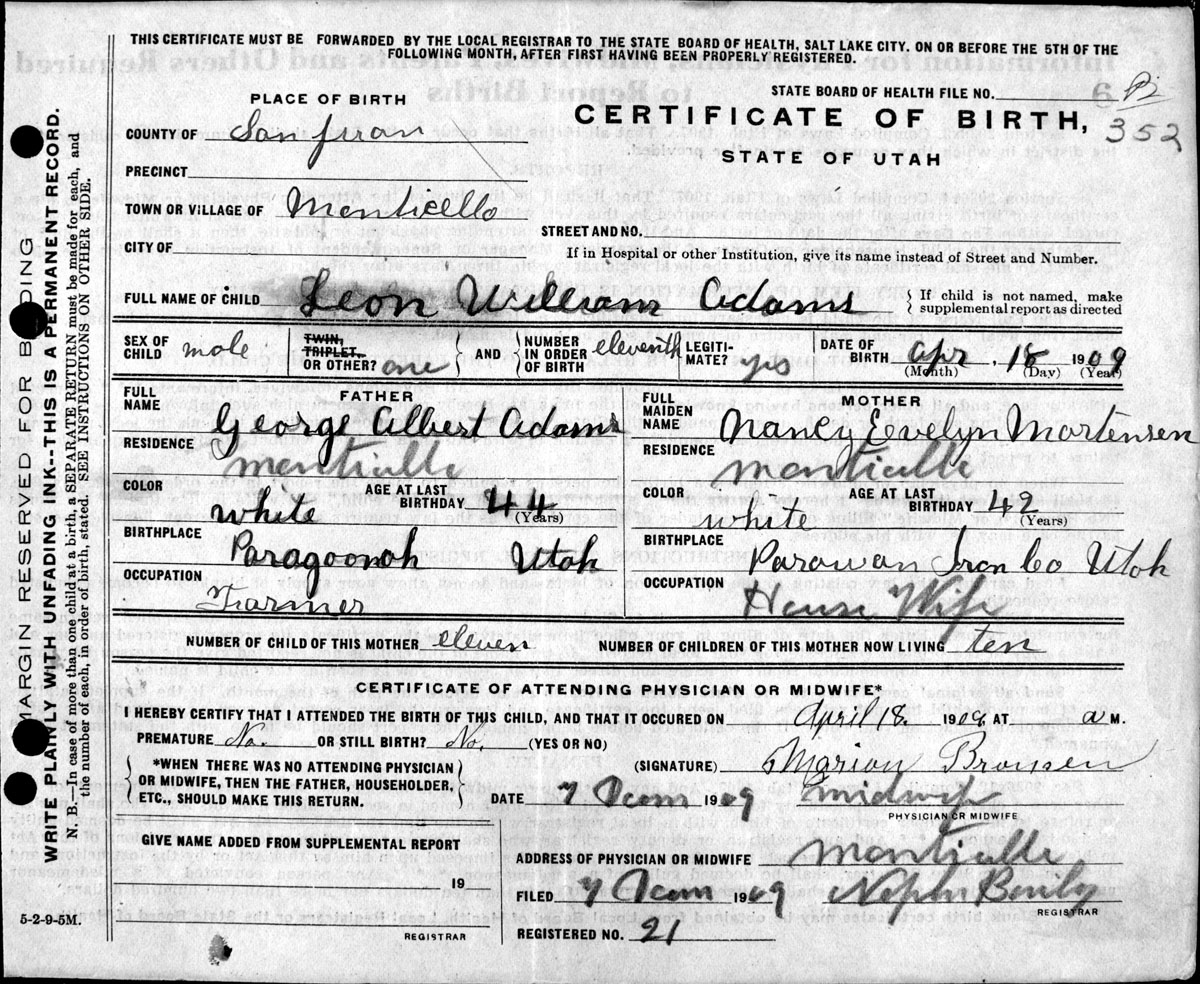 THIS CERTIFICATE MUST BE FORWARDED BY THE LOCAL REGISTRAR TO THE STATE BOARD OF HEALTH, SALT LAKE CITY. ON OR BEFORE THE 5TH OF THE
FOLLOWING MONTH, AFTER FIRST HAVING BEEN PROPERLY REGISTERED.
STATE BOARD OF HEALTH FILE NO.
352
PLACE OF BIRTH
CERTIFICATE OF BIRTH,
STATE OF UTAH
COUNTY OF San Juan
PRECINCT
TOWN OR VILLAGE OF Monticello
STREET AND NO.
CITY OF
If in Hospital or other Institution, give its name instead of Street and Number.
FULL NAME OF CHILD Leon William Adams { If child is not named, make
supplemental report as directed
SEX OF CHILD male TWIN, TRIPLET, OR OTHER? one } AND { NUMBER IN ORDER OF BIRTH eleventh LEGITI-MATE? yes DATE OF BIRTH Apr. 18 1909
(Month) (Day) (Year)
FATHER MOTHER
FULL NAME George Albert Adams FULL MAIDEN NAME Nancy Evelyn Mortensen
RESIDENCE Monticello RESIDENCE Monticello
COLOR white AGE AT LAST BIRTHDAY 44 (Years) COLOR white AGE AT LAST BIRTHDAY 42 (Years)
BIRTHPLACE Paragoonah Utah BIRTHPLACE Parowan Iron Co Utah
OCCUPATION Farmer OCCUPATION House Wife
NUMBER OF CHILD OF THIS MOTHER eleven NUMBER OF CHILDREN OF THIS MOTHER NOW LIVING ten
CERTIFICATE OF ATTENDING PHYSICIAN OR MIDWIFE*
I HEREBY CERTIFY THAT I ATTENDED THE BIRTH OF THIS CHILD, AND THAT IT OCCURED ON April 18. 1909. AT a M.
PREMATURE No. OR STILL BIRTH? No. (YES OR NO)
(SIGNATURE) Marion Bronsen
{ *WHEN THERE WAS NO ATTENDING PHYSICIAN
OR MIDWIFE, THEN THE FATHER, HOUSEHOLDER,
ETC., SHOULD MAKE THIS RETURN. }
DATE 7 1909 midwife
PHYSICIAN OR MIDWIFE
GIVE NAME ADDED FROM SUPPLEMENTAL REPORT
ADDRESS OF PHYSICIAN OR MIDWIFE Monticello
19
FILED 7 1909
REGISTRAR
REGISTRAR
REGISTERED NO. 21
5-2-9-5M.
MARGIN RESERVED FOR BINDING
WRITE PLAINLY WITH UNFADING INK--THIS IS A PERMANENT RECORD.
N. B.—In case of more than one child at a birth, a SEPARATE RETURN must be made for each, and
the number of each, in order of birth, stated. SEE INSTRUCTIONS ON OTHER SIDE.